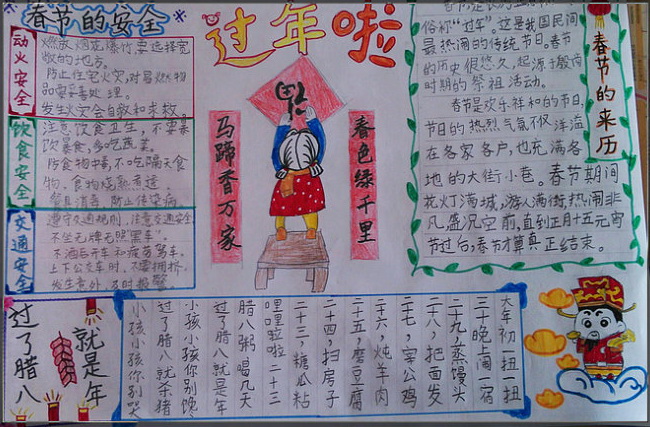 春节的安全
动火安全
燃放烟花爆竹要选择宽
敞的地方。
防止住宅火灾,对易燃物
品要妥善处理。
发生火灾会自救和求救
饮食安全
注意饮食卫生,不要暴
饮暴食,多吃蔬菜。
防食物中毒,不吃隔夜食
物,食物烧熟煮透。
餐具消毒,防止传染病
交通安全
遵守交通规则,注意交通安全
不坐无牌无照"黑车"。
不酒后开车和疲劳驾车。
上下公交车时,不要拥挤,
发生意外,及时报警
过年啦
春色绿千里
马蹄香万家
春节的来历
俗称"过年"。这是我国民间
最热闹的传统节日。春节
的历史很悠久,起源于殷商
时期的祭祖活动。
春节是欢乐祥和的节日,
节日的热烈气氛不仅洋溢
在各家各户,也充满各
地的大街小巷。春节期间
花灯满城,游人满街,热闹非
凡,盛况空前,直到正月十五元宵
节过后,春节才算真正结束。
过了腊八
就是年
小孩小孩你别哭
过了腊八就杀猪
小孩小孩你别馋
过了腊八就是年
腊八粥 喝几天
哩哩啦啦 二十三
二十三,糖瓜粘
二十四,扫房子
二十五,磨豆腐
二十六,炖羊肉
二十七,宰公鸡
二十八,把面发
二十九,蒸馒头
三十晚上闹一宿
大年初一扭一扭